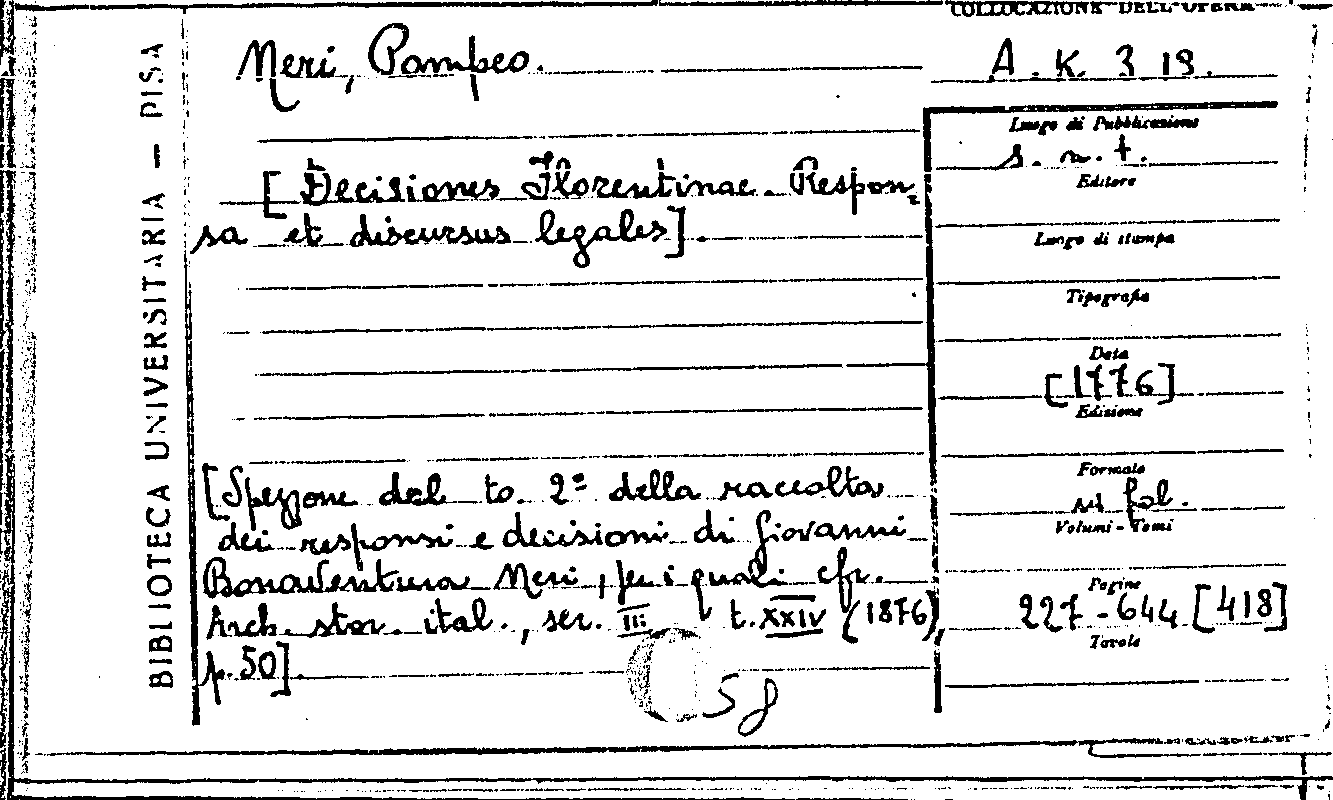 COLLOCAZIONE DELL'OPERA
BIBLIOTECA UNIVERSITARIA — PISA
Neri, Pompeo.
A. K. 3 19.
[Decisiones Florentinae. Respon-
sa et discursus legales].
[Spezzone del to. 2º della raccolta
dei responsi e decisioni di Giovanni
Bonaventura Neri, per i quali cfr.
Arch. stor. ital., ser. III t. XXIV (1876),
p. 50].
58
Luogo di Pubblicazione
s. n. t.
Editore
Luogo di stampa
Tipografia
Data
[1776]
Edizione
Formato
in fol.
Volumi - Tomi
Pagine
227-644 [418]
Tavole